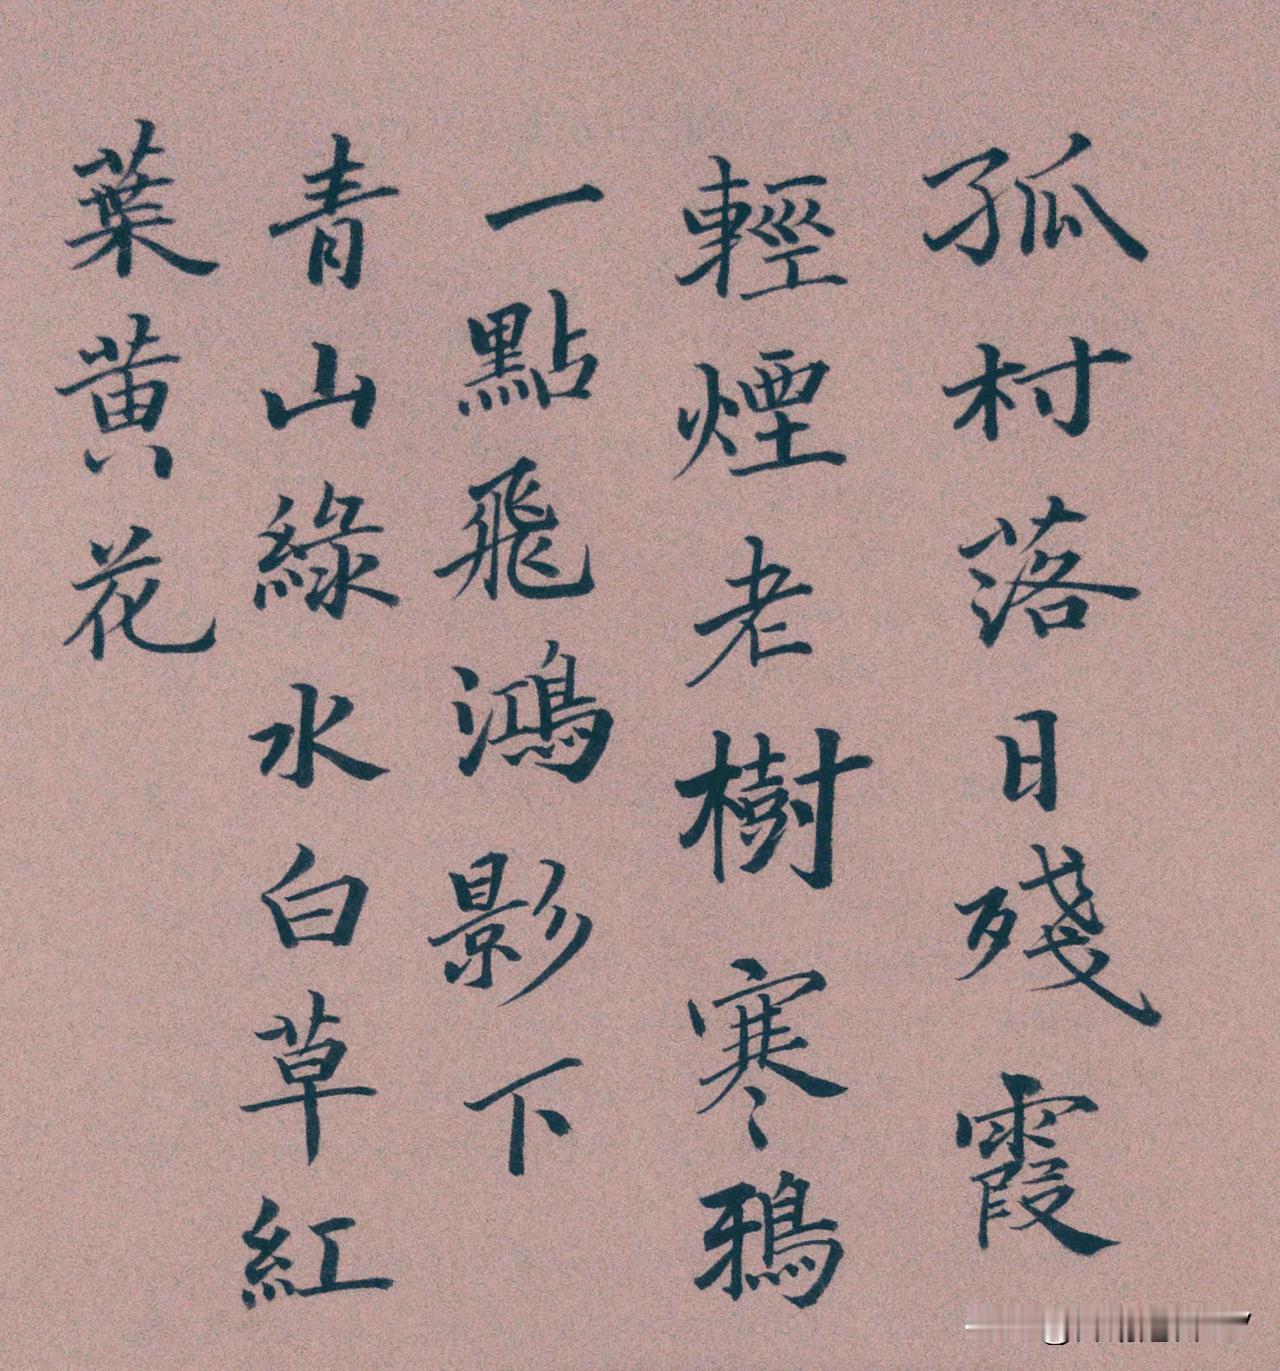 孤村落日殘霞
輕煙老樹寒鴉
一點飛鴻影下
青山綠水白草紅
葉黄花